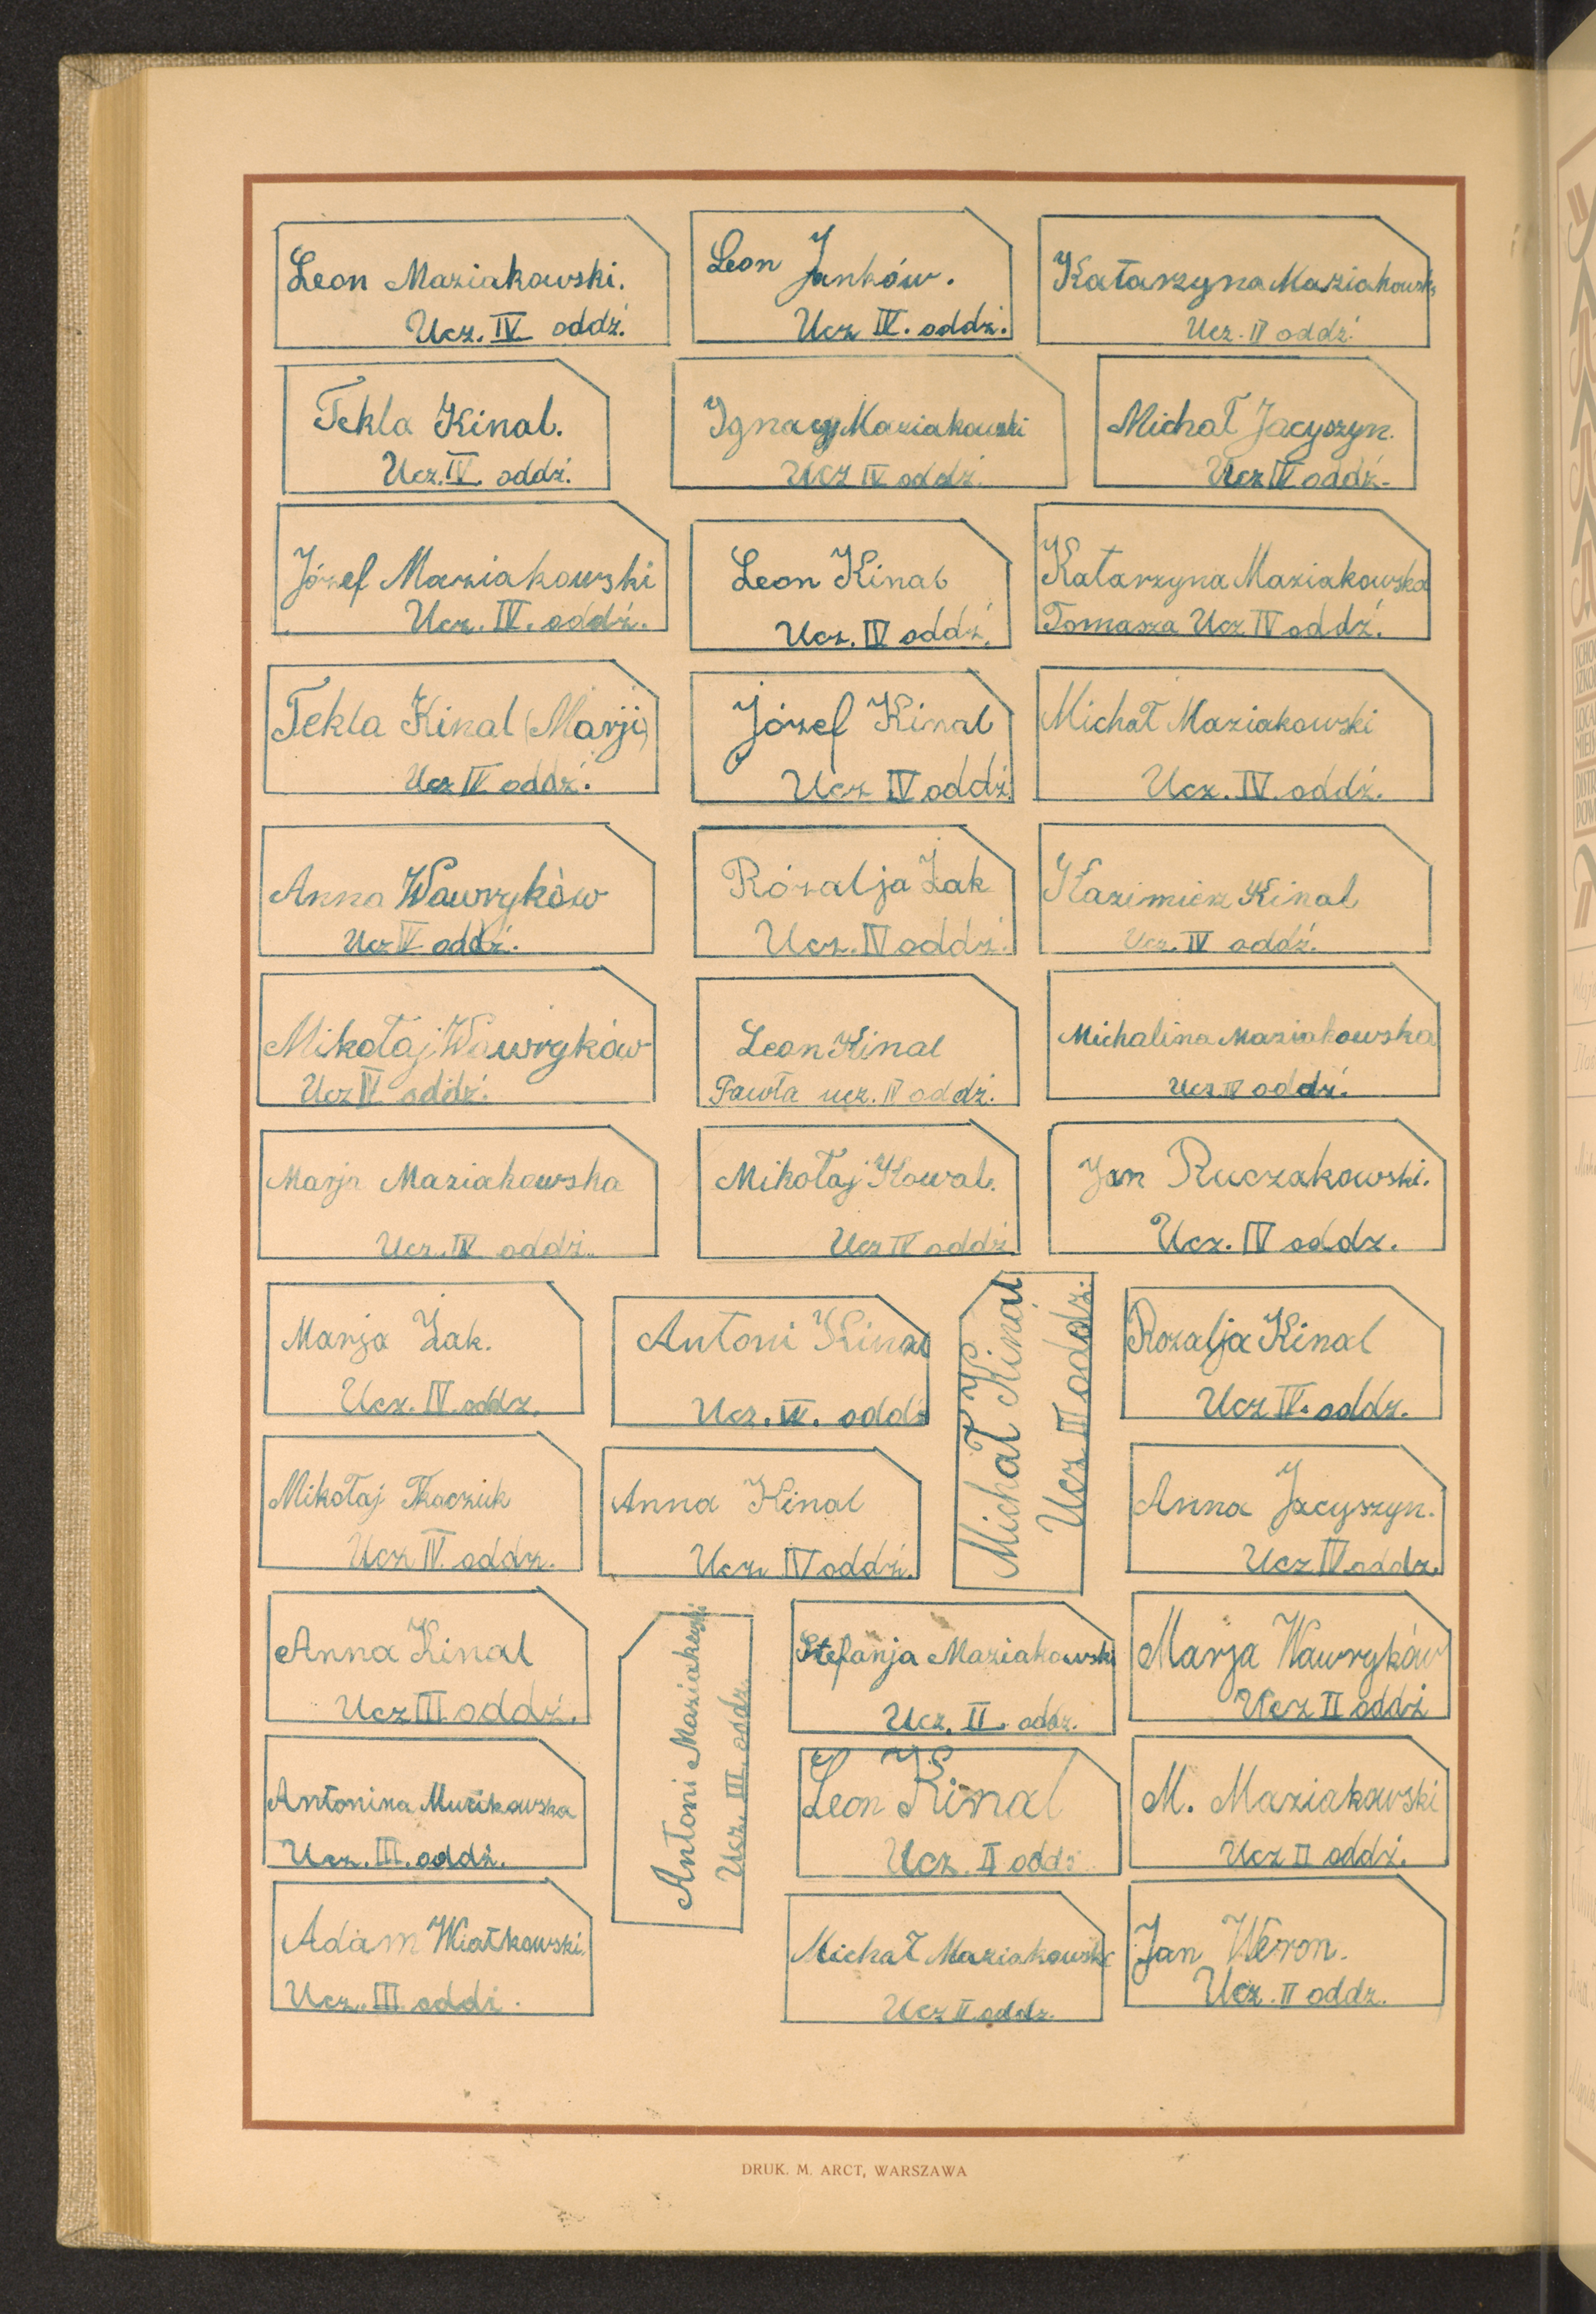 Leon Maziakowski.
Ucz. IV oddz.
Leon Janków.
Ucz IV. oddz.
Katarzyna Maziakowsk
Ucz. IV oddź
Tekla Kinal.
Ucz. IV oddź.
Ignacy Maziakowski
Ucz IV oddź.
Michał Jacyszyn.
Ucz IV oddź.
Józef Maziakowski
Ucz. IV. oddź.
Leon Kinal
Ucz. IV oddź.
Katarzyna Maziakowska
Tomasza Ucz IV oddź.
Tekla Kinal (Marji)
Ucz IV oddź.
Józef Kinal
Ucz IV oddź
Michał Maziakowski
Ucz. IV. oddź.
Anna Wawryków
Ucz IV oddź.
Rózalja Żak
Ucz. IV oddz.
Kazimierz Kinal
Ucz. IV oddź.
Mikołaj Wawryków
Ucz IV oddź.
Leon Kinal
Pawła ucz. IV oddź.
Michalina Maziakowska
Ucz. IV oddź.
Marja Maziakowska
Ucz. IV oddź.
Mikołaj Kowal.
Ucz IV oddź
Jan Ruczakowski.
Ucz. IV oddz.
Marja Żak.
Ucz. IV oddz.
Antoni Kinal
Ucz. IV. oddź
Michał Kinal
Ucz III oddz.
Rozalja Kinal
Ucz IV. oddz.
Mikołaj Tkaczuk
Ucz IV. oddz.
Anna Kinal
Ucz. IV oddź.
Anna Jacyszyn.
Ucz IV oddz.
Anna Kinal
Ucz III oddź.
Antoni Maziakowski
Ucz. III. oddz.
Stefanja Maziakowski
Ucz. II. oddz.
Marja Wawryków
Ucz II oddź
Antonina
Ucz. III. oddź.
Leon Kinal
Ucz. II oddz
M. Maziakowski
Ucz II oddź.
Adam Wiatkowski.
Ucz. III oddź.
Michał Maziakowski
Ucz II oddz.
Jan Weron.
Ucz. II oddz.
DRUK. M. ARCT, WARSZAWA